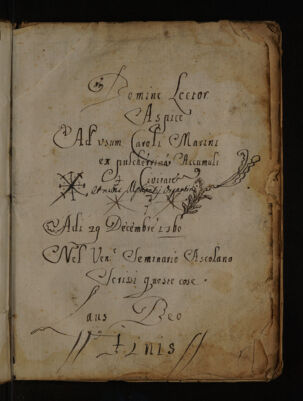 Domine Lector
Aspice
Ad usum Caroli Marini
ex pulcherrima Accumuli
Civitate
Adi 29 Decembre
Nel Ven. Seminario Ascolano
Scrissi queste cose.
Laus Deo
Finis